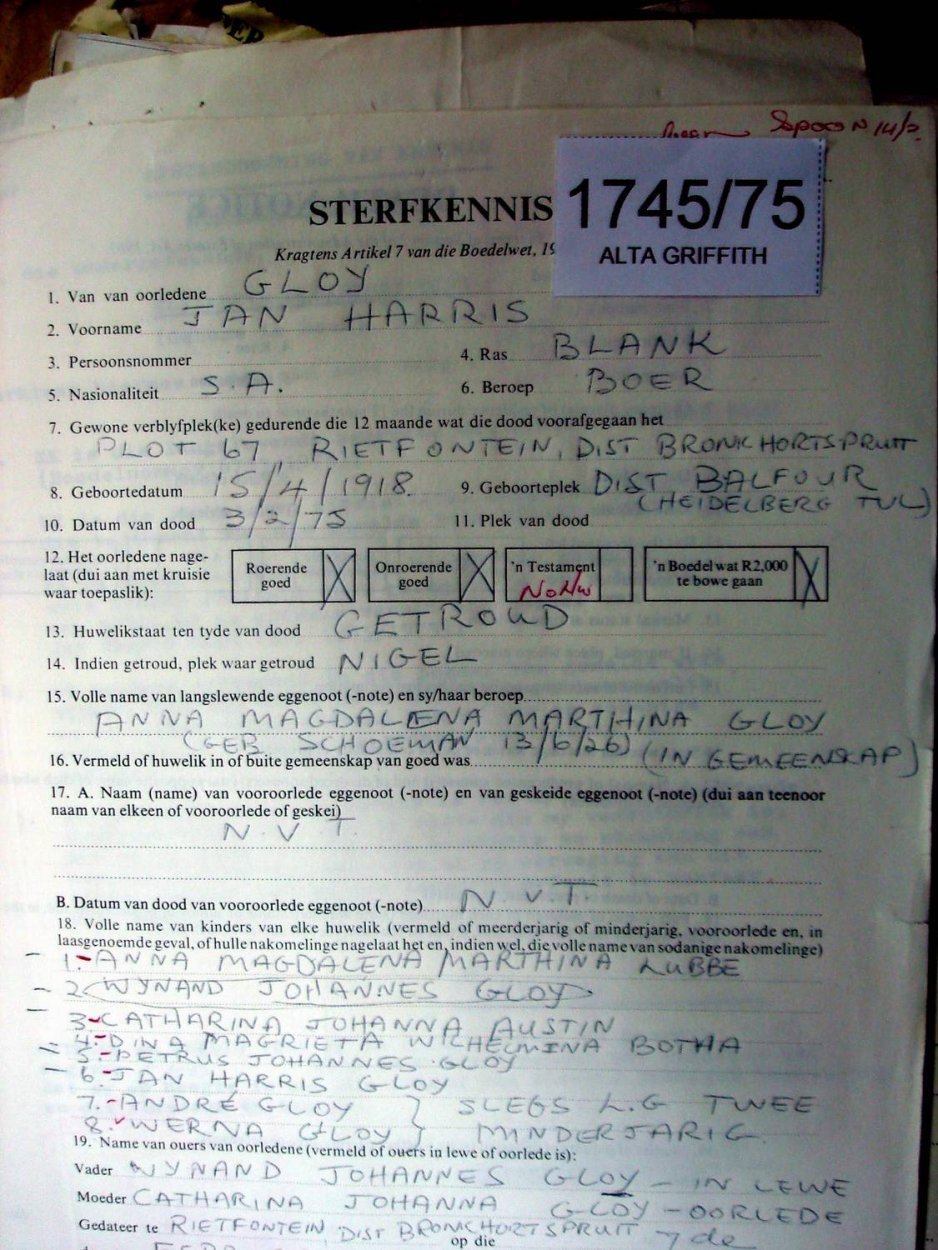 Sapoo N 14/2
1745/75
ALTA GRIFFITH
STERFKENNIS
Kragtens Artikel 7 van die Boedelwet, 19
1. Van van oorledene GLOY
2. Voorname JAN HARRIS
3. Persoonsnommer 4. Ras BLANK
5. Nasionaliteit S.A. 6. Beroep BOER
7. Gewone verblyfplek(ke) gedurende die 12 maande wat die dood voorafgegaan het
PLOT 67, RIETFONTEIN, DIST BRONKHORTSPRUIT
8. Geboortedatum 15/4/1918. 9. Geboorteplek DIST BALFOUR
(HEIDELBERG TUL)
10. Datum van dood 3/2/75 11. Plek van dood
12. Het oorledene nage-
laat (dui aan met kruisie
waar toepaslik):
Roerende
goed X
Onroerende
goed X
'n Testament
'n Boedel wat R2,000
te bowe gaan X
13. Huwelikstaat ten tyde van dood GETROUD
14. Indien getroud, plek waar getroud NIGEL
15. Volle name van langslewende eggenoot (-note) en sy/haar beroep
ANNA MAGDALENA MARTHINA GLOY
(GEB SCHOEMAN 13/6/26)
16. Vermeld of huwelik in of buite gemeenskap van goed was (IN GEMEENSKAP)
17. A. Naam (name) van vooroorlede eggenoot (-note) en van geskeide eggenoot (-note) (dui aan teenoor
naam van elkeen of vooroorlede of geskei)
N.V.T.
B. Datum van dood van vooroorlede eggenoot (-note) N VT.
18. Volle name van kinders van elke huwelik (vermeld of meerderjarig of minderjarig, vooroorlede en, in
laasgenoemde geval, of hulle nakomelinge nagelaat het en, indien wel, die volle name van sodanige nakomelinge)
1.-ANNA MAGDALENA MARTHINA LUBBE
2 WYNAND JOHANNES GLOY
3-CATHARINA JOHANNA AUSTIN
4.-DINA MAGRIETA WILHELMINA BOTHA
5.-PETRUS JOHANNES GLOY
6.-JAN HARRIS GLOY
7.-ANDRÉ GLOY } SLEGS L.G TWEE
8. WERNA GLOY } MINDERJARIG.
19. Name van ouers van oorledene (vermeld of ouers in lewe of oorlede is):
Vader WYNAND JOHANNES GLOY - IN LEWE
Moeder CATHARINA JOHANNA GLOY - OORLEDE
Gedateer te RIETFONTEIN, DIST BRONKHORTSPRUIT op die 7 de